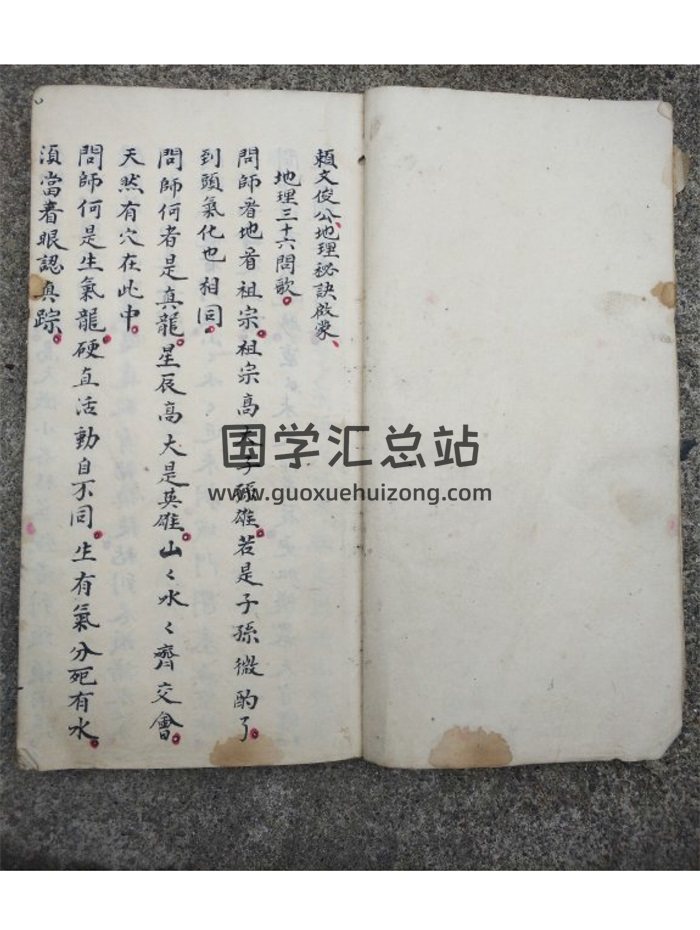 賴文俊公地理秘訣啟蒙
地理三十六問歌
問師看地看祖宗祖宗高大子孫雄若是子孫微酌了
到頭氣化也相同
問師何者是真龍星辰高大是英雄山々水々齊交會
天然有穴在此中
問師何是生氣龍硬直活動自不同生有氣分死有水
須當看眼認真踪
国学汇总站
www.guoxuehuizong.com